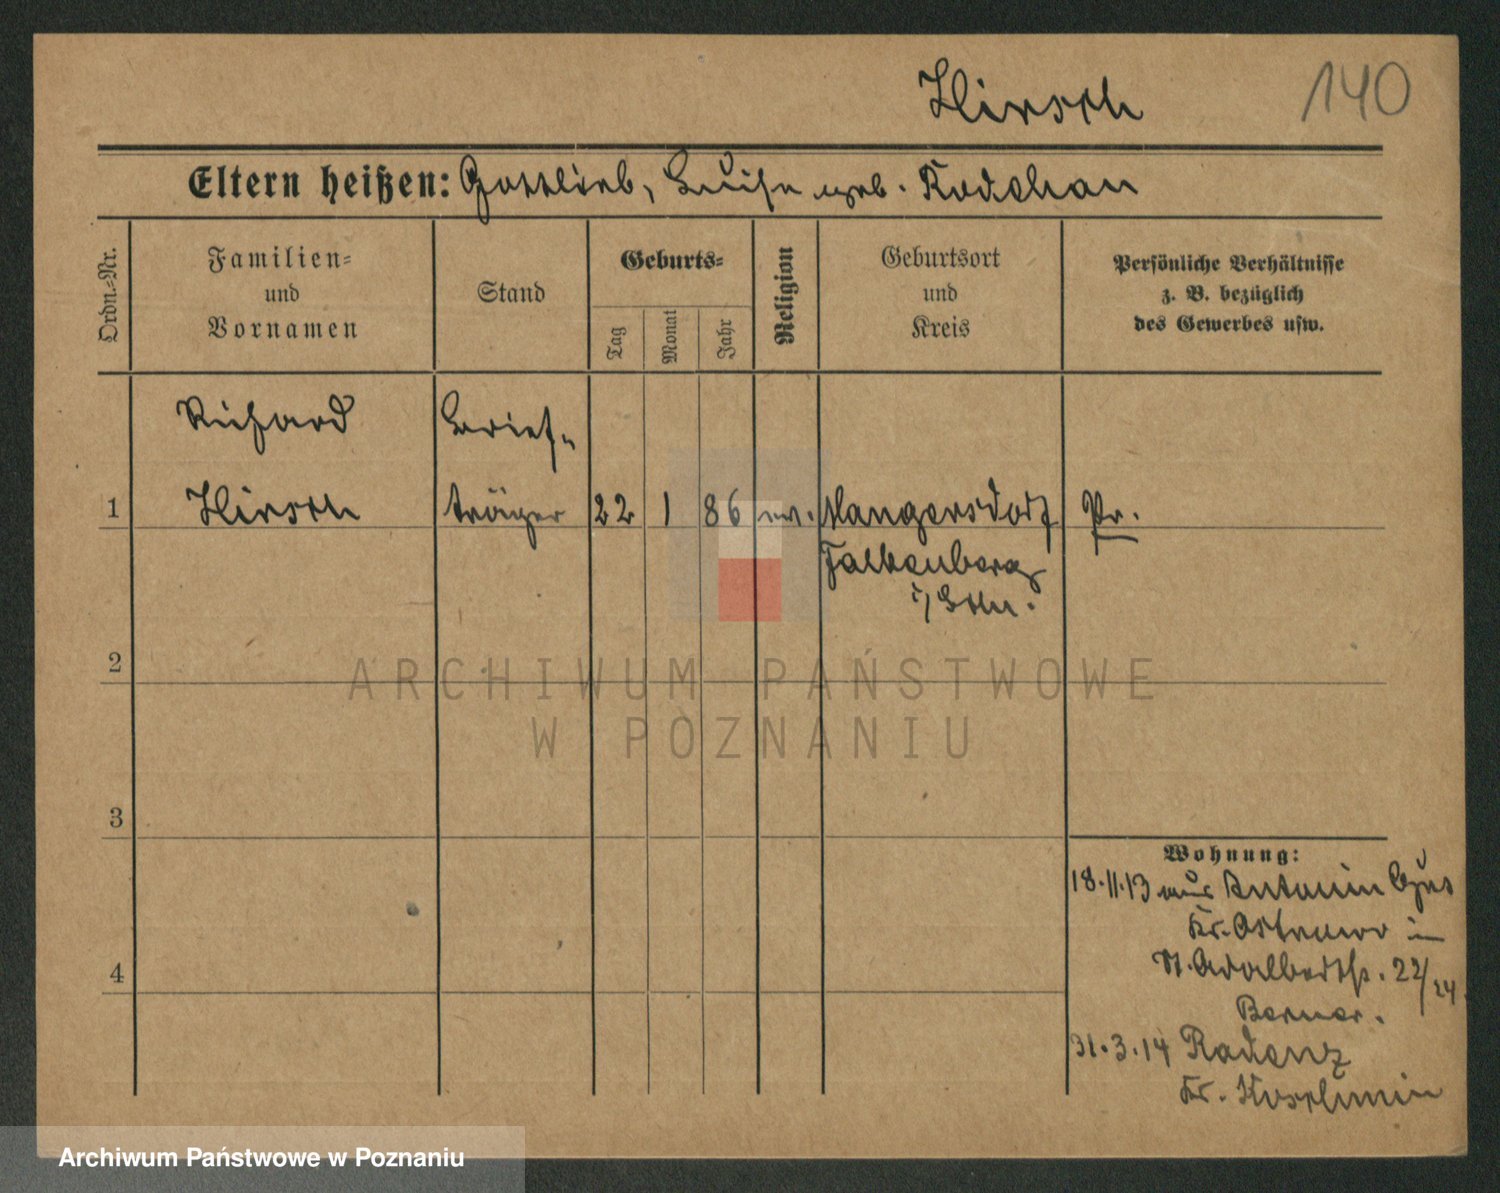 Hirsch 140
Eltern heißen: Gottlieb, Luise geb. Kodchan
Ordn.=Nr.
Familien=
und
Vornamen
Stand
Geburts=
Tag
Monat
Jahr
Religion
Geburtsort
und
Kreis
Persönliche Verhältnisse
z. B. bezüglich
des Gewerbes usw.
Richard Brief-
1 Hirsch träger 22 1 86 ev. Mangersdorf Pr.
Falkenberg
2
3
Wohnung:
18.11.13 aus Antonin
Kr. Ostrowo in
4 St. Adalbertstr. 22/24
Berner.
31.3.14 Radenz
Kr. Koschmin
ARCHIWUM PAŃSTWOWE
W POZNANIU
Archiwum Państwowe w Poznaniu